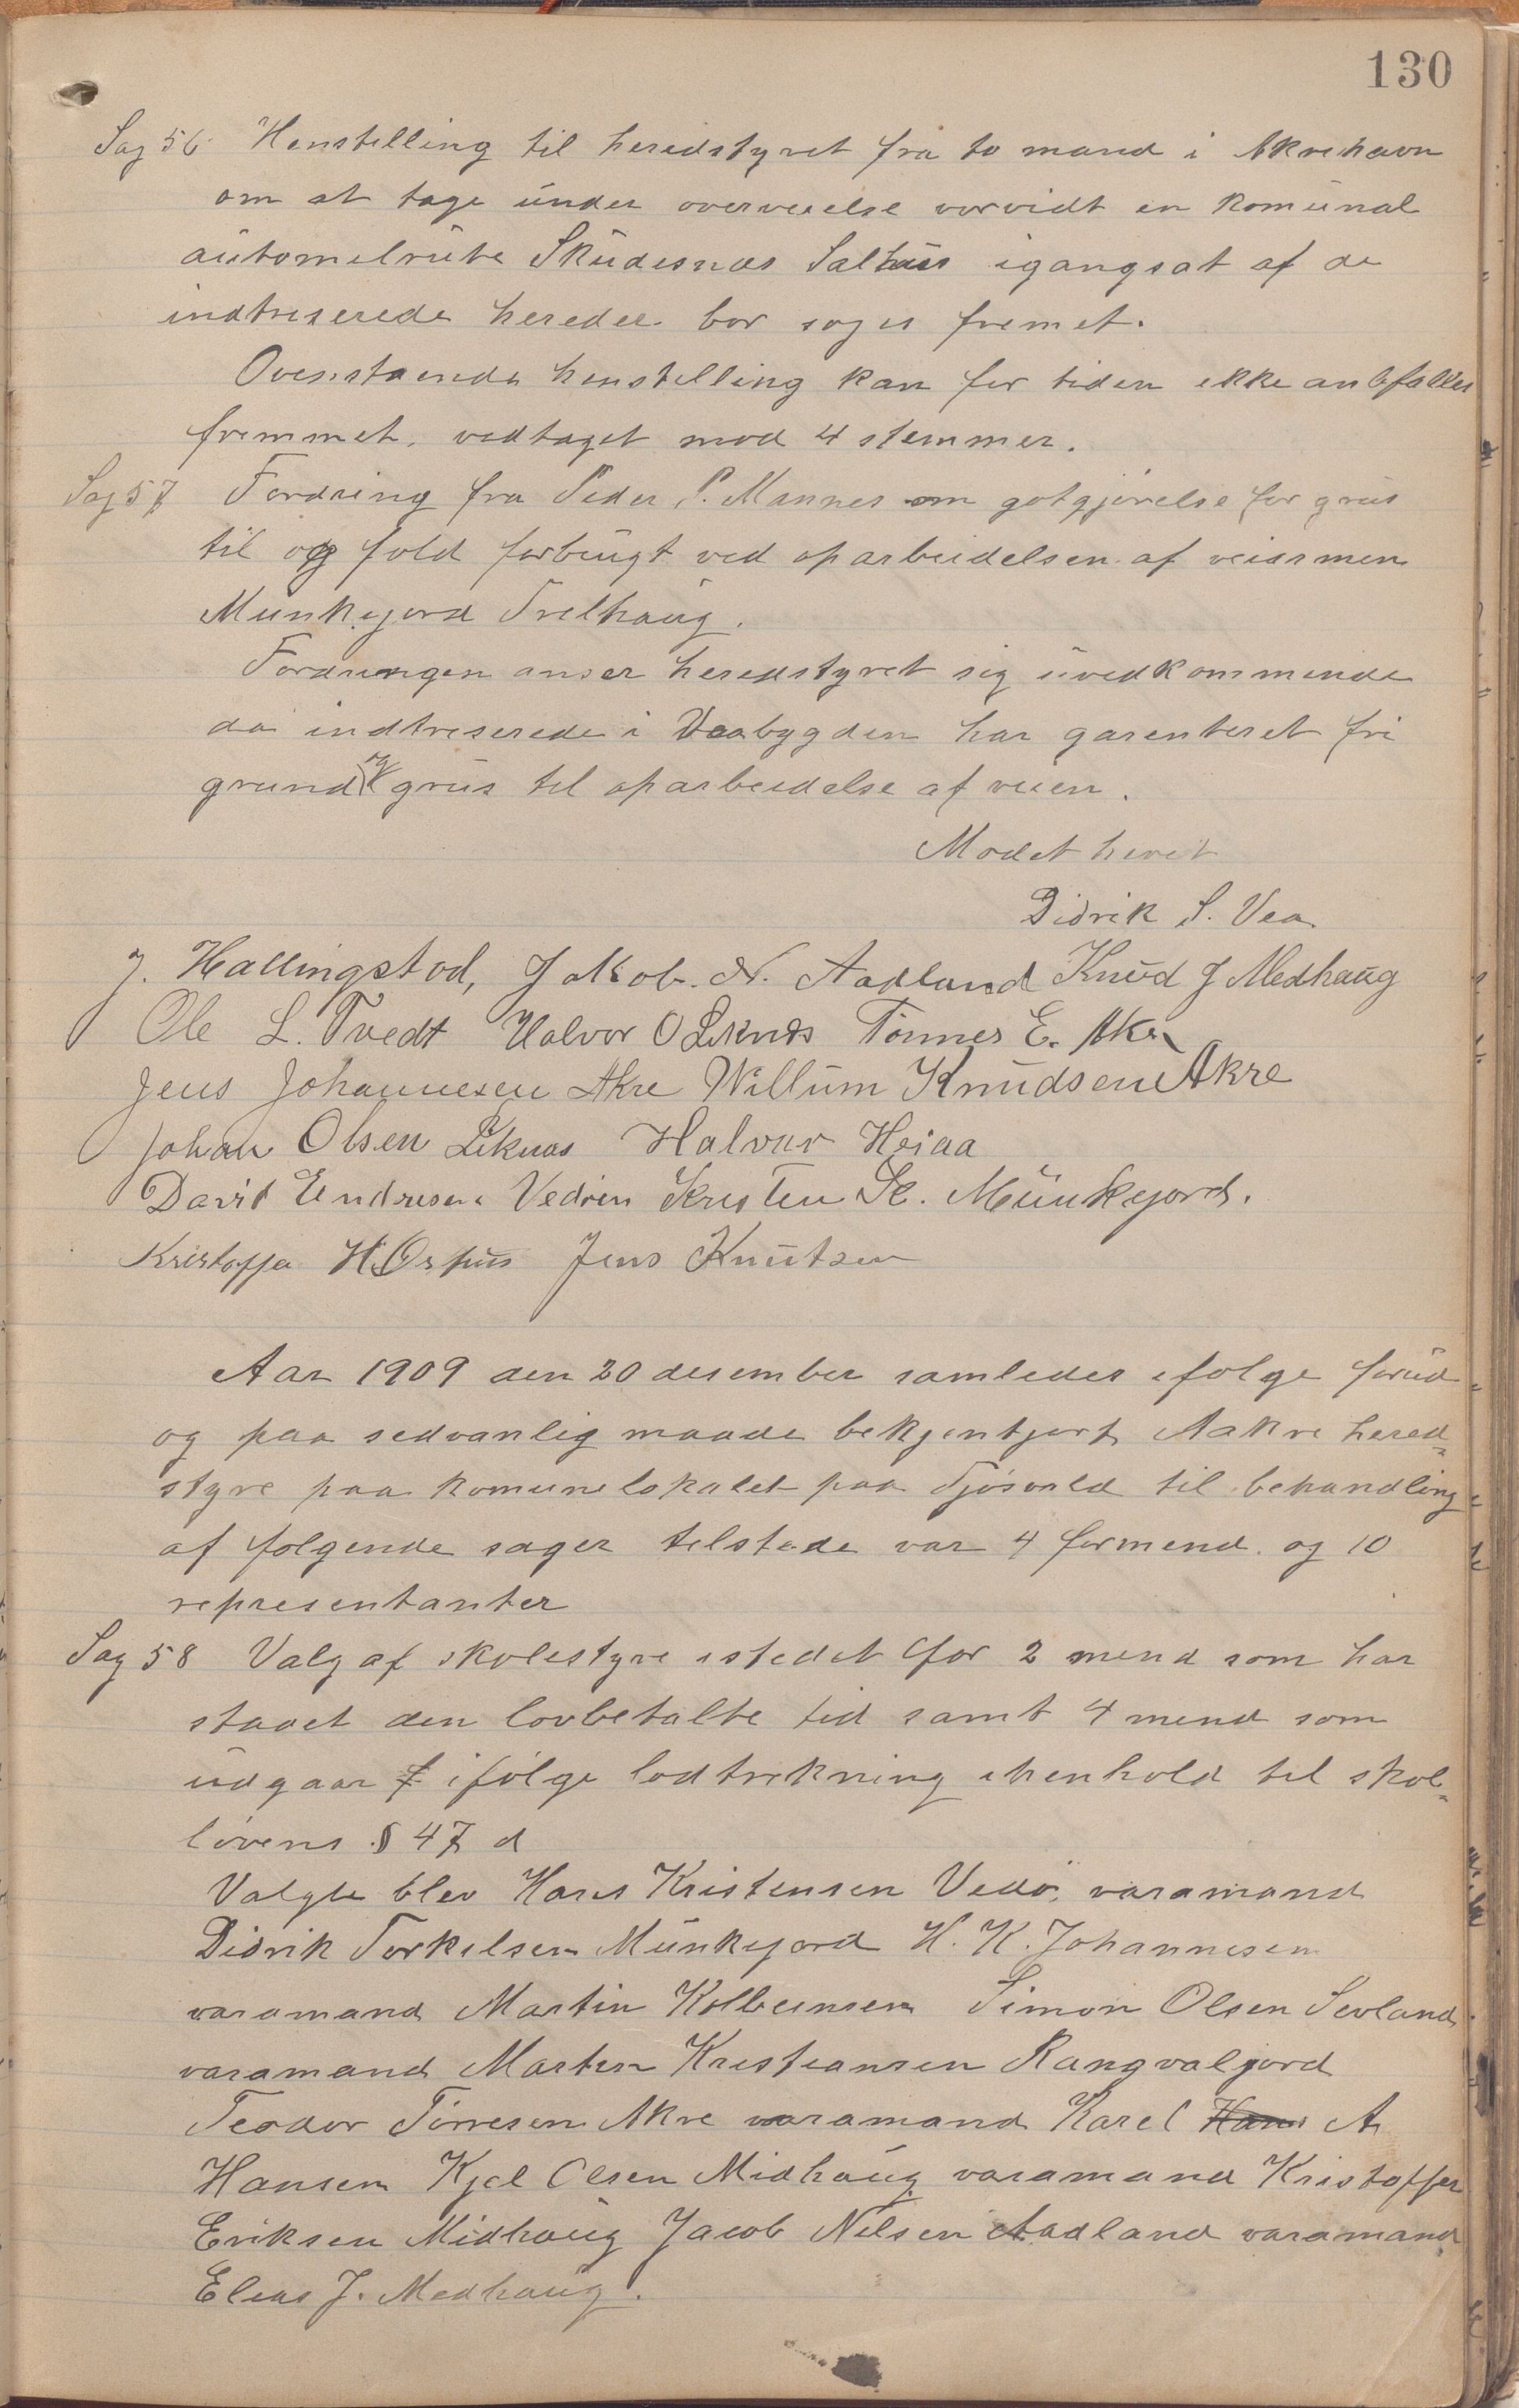 130
Sag 56 Henstelling til heredstyret fra to mand i Akrehavn
om at tage under overveielse vorvidt en komunal
automelrute Skudesnæs Salhus igangsat af de
indtreserede hereder bor soges fremet.
Ovenstaende henstelling kan for tiden ikke anbefalles
fremmet. vedtaget mod 4 stemmer.
Sag 57 Fordring fra Peder P. Mannes om gotgjørelse for grus
til og fold forbrugt ved oparbeidelsen af veiarmen
Munkejord Trelhaug.
Fordringen anser heredstyret sig uvedkommende
da indtreserede i Veabygden har garenteret fri
grund og grus til oparbeidelse af veien.
Modet hevet
Didrik S. Vea
J. Hallingstad, Jakob. N. Aadland Knud J Medhaug
Ole L. Tvedt Halvor O Liknes Tønnes E. Akre
Jens Johannesen Akre Willum Knudsen Akre
Johan Olsen Liknes Halvar Heiaa
David Endresen Vedøen Kristen Sk. Munkejord.
Kristoffa H. Ospus Jens Knutsen
Aar 1909 den 20 desember samledes efolge forud
og paa sedvanlig maade bekjentjort Aakre hered-
styre paa komunelokalet paa Tjøsvold til behandling
af folgende sager telstede var 4 formend. og 10
representanter
Sag 58 Valg af skolestyre istedet for 2 mend som har
staaet den lovbetalte tid samt 4 mend som
udgaar f ifølge lodtrekning ehenhold til skol-
lovens § 47 d
Valgte blev Hans Kristensen Vedø, varamand
Didrik Torkelsen Munkejord H. K. Johannesen
varamand Martin Kolbeinsen Simon Olsen Sevland
varamand Marten Kristiansen Rangvaljord
Teodor Tørresen Akre varamand Karel Hans A
Hansen Kjel Olsen Midhaug varamand Kristoffer
Eriksen Midhaug Jacob Nilsen Aadland varamand
Elias J. Medhaug.